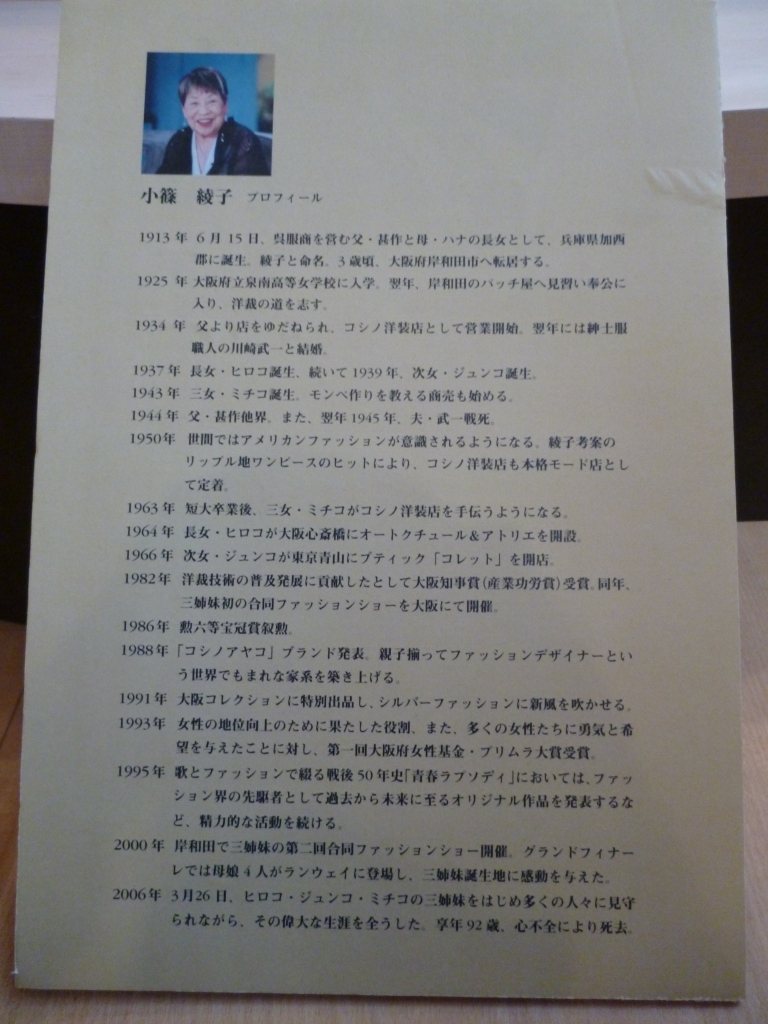 小篠 綾子 プロフィール
1913年 6月15日、呉服商を営む父・甚作と母・ハナの長女として、兵庫県加西
郡に誕生。綾子と命名。3歳頃、大阪府岸和田市へ転居する。
1925年 大阪府立泉南高等女学校に入学。翌年、岸和田のパッチ屋へ見習い奉公に
入り、洋裁の道を志す。
1934年 父より店をゆだねられ、コシノ洋装店として営業開始。翌年には紳士服
職人の川崎武一と結婚。
1937年 長女・ヒロコ誕生、続いて1939年、次女・ジュンコ誕生。
1943年 三女・ミチコ誕生。モンペ作りを教える商売も始める。
1944年 父・甚作他界。また、翌年1945年、夫・武一戦死。
1950年 世間ではアメリカンファッションが意識されるようになる。綾子考案の
リップル地ワンピースのヒットにより、コシノ洋装店も本格モード店とし
て定着。
1963年 短大卒業後、三女・ミチコがコシノ洋装店を手伝うようになる。
1964年 長女・ヒロコが大阪心斎橋にオートクチュール&アトリエを開設。
1966年 次女・ジュンコが東京青山にブティック「コレット」を開店。
1982年 洋裁技術の普及発展に貢献したとして大阪知事賞(産業功労賞)受賞。同年、
三姉妹初の合同ファッションショーを大阪にて開催。
1986年 勲六等宝冠賞叙勲。
1988年「コシノアヤコ」ブランド発表。親子揃ってファッションデザイナーとい
う世界でもまれな家系を築き上げる。
1991年 大阪コレクションに特別出品し、シルバーファッションに新風を吹かせる。
1993年 女性の地位向上のために果たした役割、また、多くの女性たちに勇気と希
望を与えたことに対し、第一回大阪府女性基金・プリムラ大賞受賞。
1995年 歌とファッションで綴る戦後50年史「青春ラプソディ」においては、ファッ
ション界の先駆者として過去から未来に至るオリジナル作品を発表するな
ど、精力的な活動を続ける。
2000年 岸和田で三姉妹の第二回合同ファッションショー開催。グランドフィナー
レでは母娘4人がランウェイに登場し、三姉妹誕生地に感動を与えた。
2006年 3月26日、ヒロコ・ジュンコ・ミチコの三姉妹をはじめ多くの人々に見守
られながら、その偉大な生涯を全うした。享年92歳、心不全により死去。